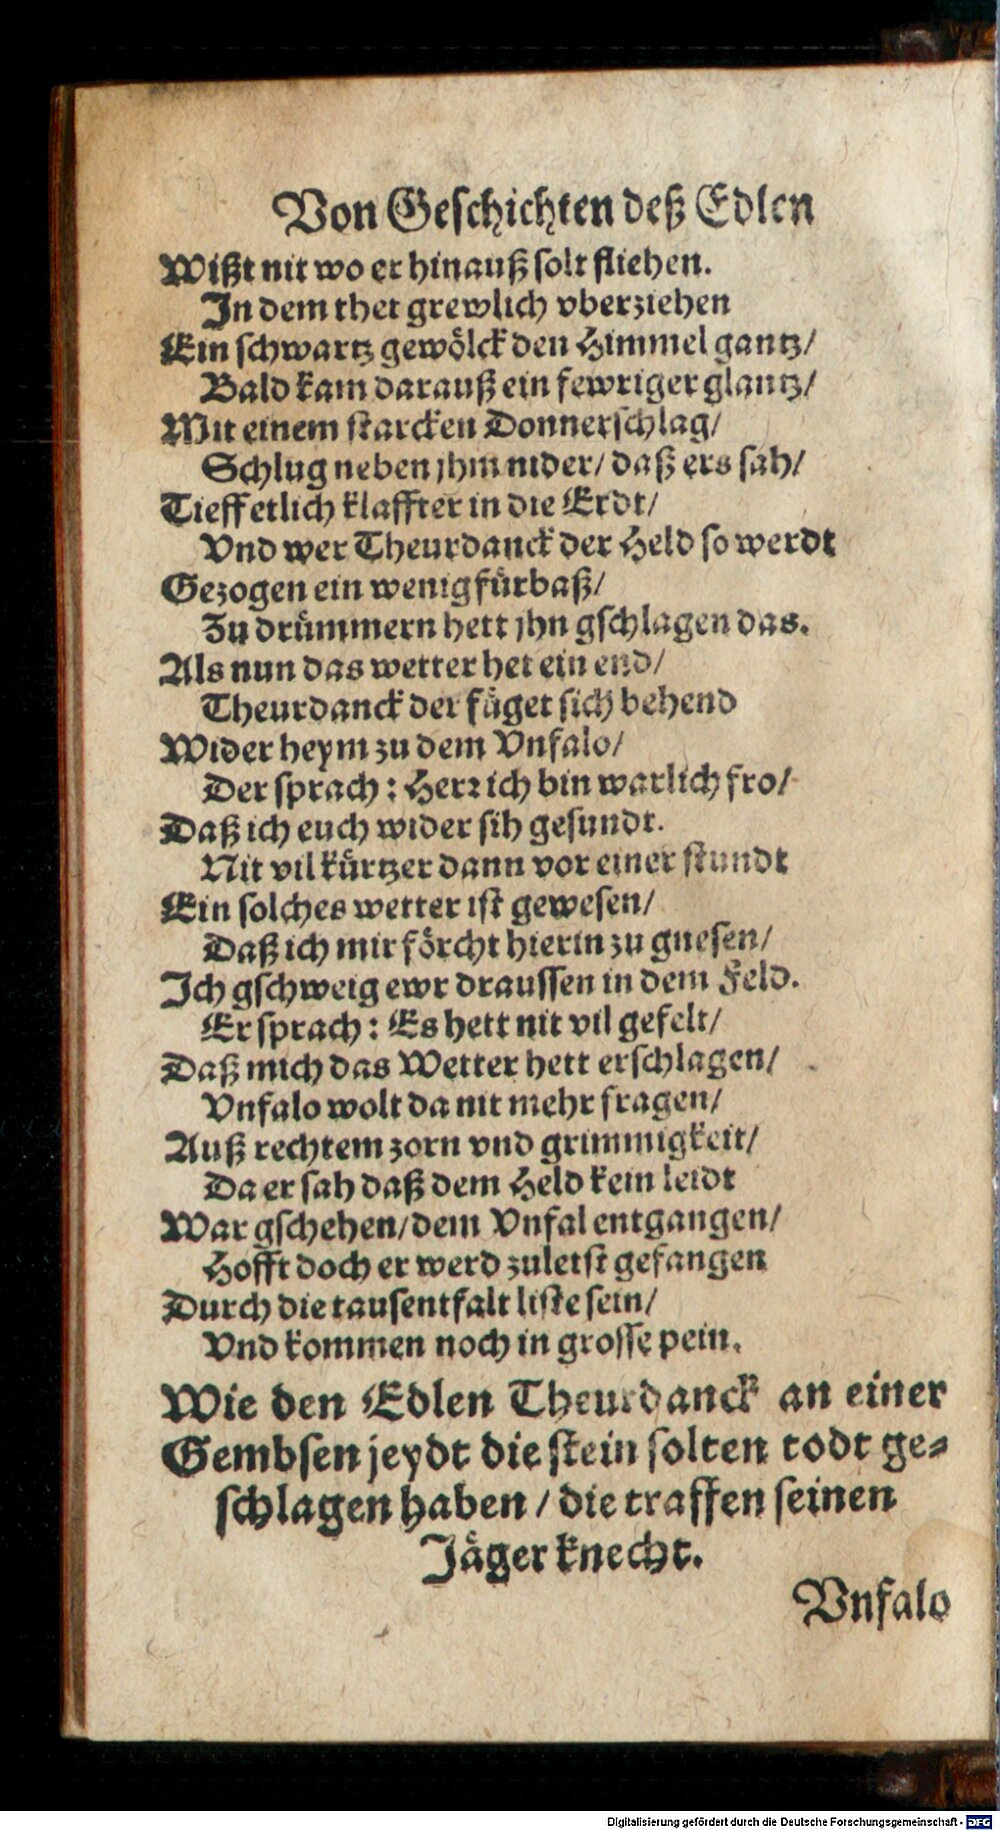 Von Geschichten deß Edlen
Wißt nit wo er hinauß solt fliehen.
In dem thet grewlich vberziehen
Ein schwartz gewölck den Himmel gantz/
Bald kam darauß ein fewriger glantz/
Mit einem starcken Donnerschlag/
Schlug neben jhm nider/ daß ers sah/
Tieff etlich klaffter in die Erdt/
Vnd wer Theurdanck der Held so werdt
Gezogen ein wenig fürbaß/
Zu drümmern hett jhn gschlagen das.
Als nun das wetter het ein end/
Theurdanck der füget sich behend
Wider heym zu dem Vnfalo/
Der sprach: Herr ich bin warlich fro/
Daß ich euch wider sih gesundt.
Nit vil kürtzer dann vor einer stundt
Ein solches wetter ist gewesen/
Daß ich mir förcht hierin zu gnesen/
Ich gschweig ewr draussen in dem Feld.
Er sprach: Es hett nit vil gefelt/
Daß mich das Wetter hett erschlagen/
Vnfalo wolt da nit mehr fragen/
Auß rechtem zorn vnd grimmigkeit/
Da er sah daß dem Held kein leidt
War gschehen/ dem Vnfal entgangen/
Hofft doch er werd zuletst gefangen
Durch die tausentfalt liste sein/
Vnd kommen noch in grosse pein.
Wie den Edlen Theurdanck an einer
Gembsen jeydt die stein solten todt ge-
schlagen haben / die traffen seinen
Jäger knecht.
Vnfalo
Digitalisierung gefördert durch die Deutsche Forschungsgemeinschaft - DFG